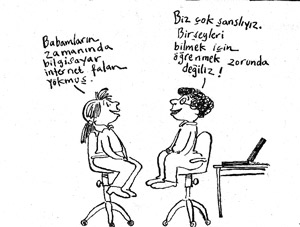 Babamların
zamanında
bilgisayar
internet falan
yokmuş.
Biz çok şanslıyız.
Birşeyleri
bilmek için
öğrenmek zorunda
değiliz!